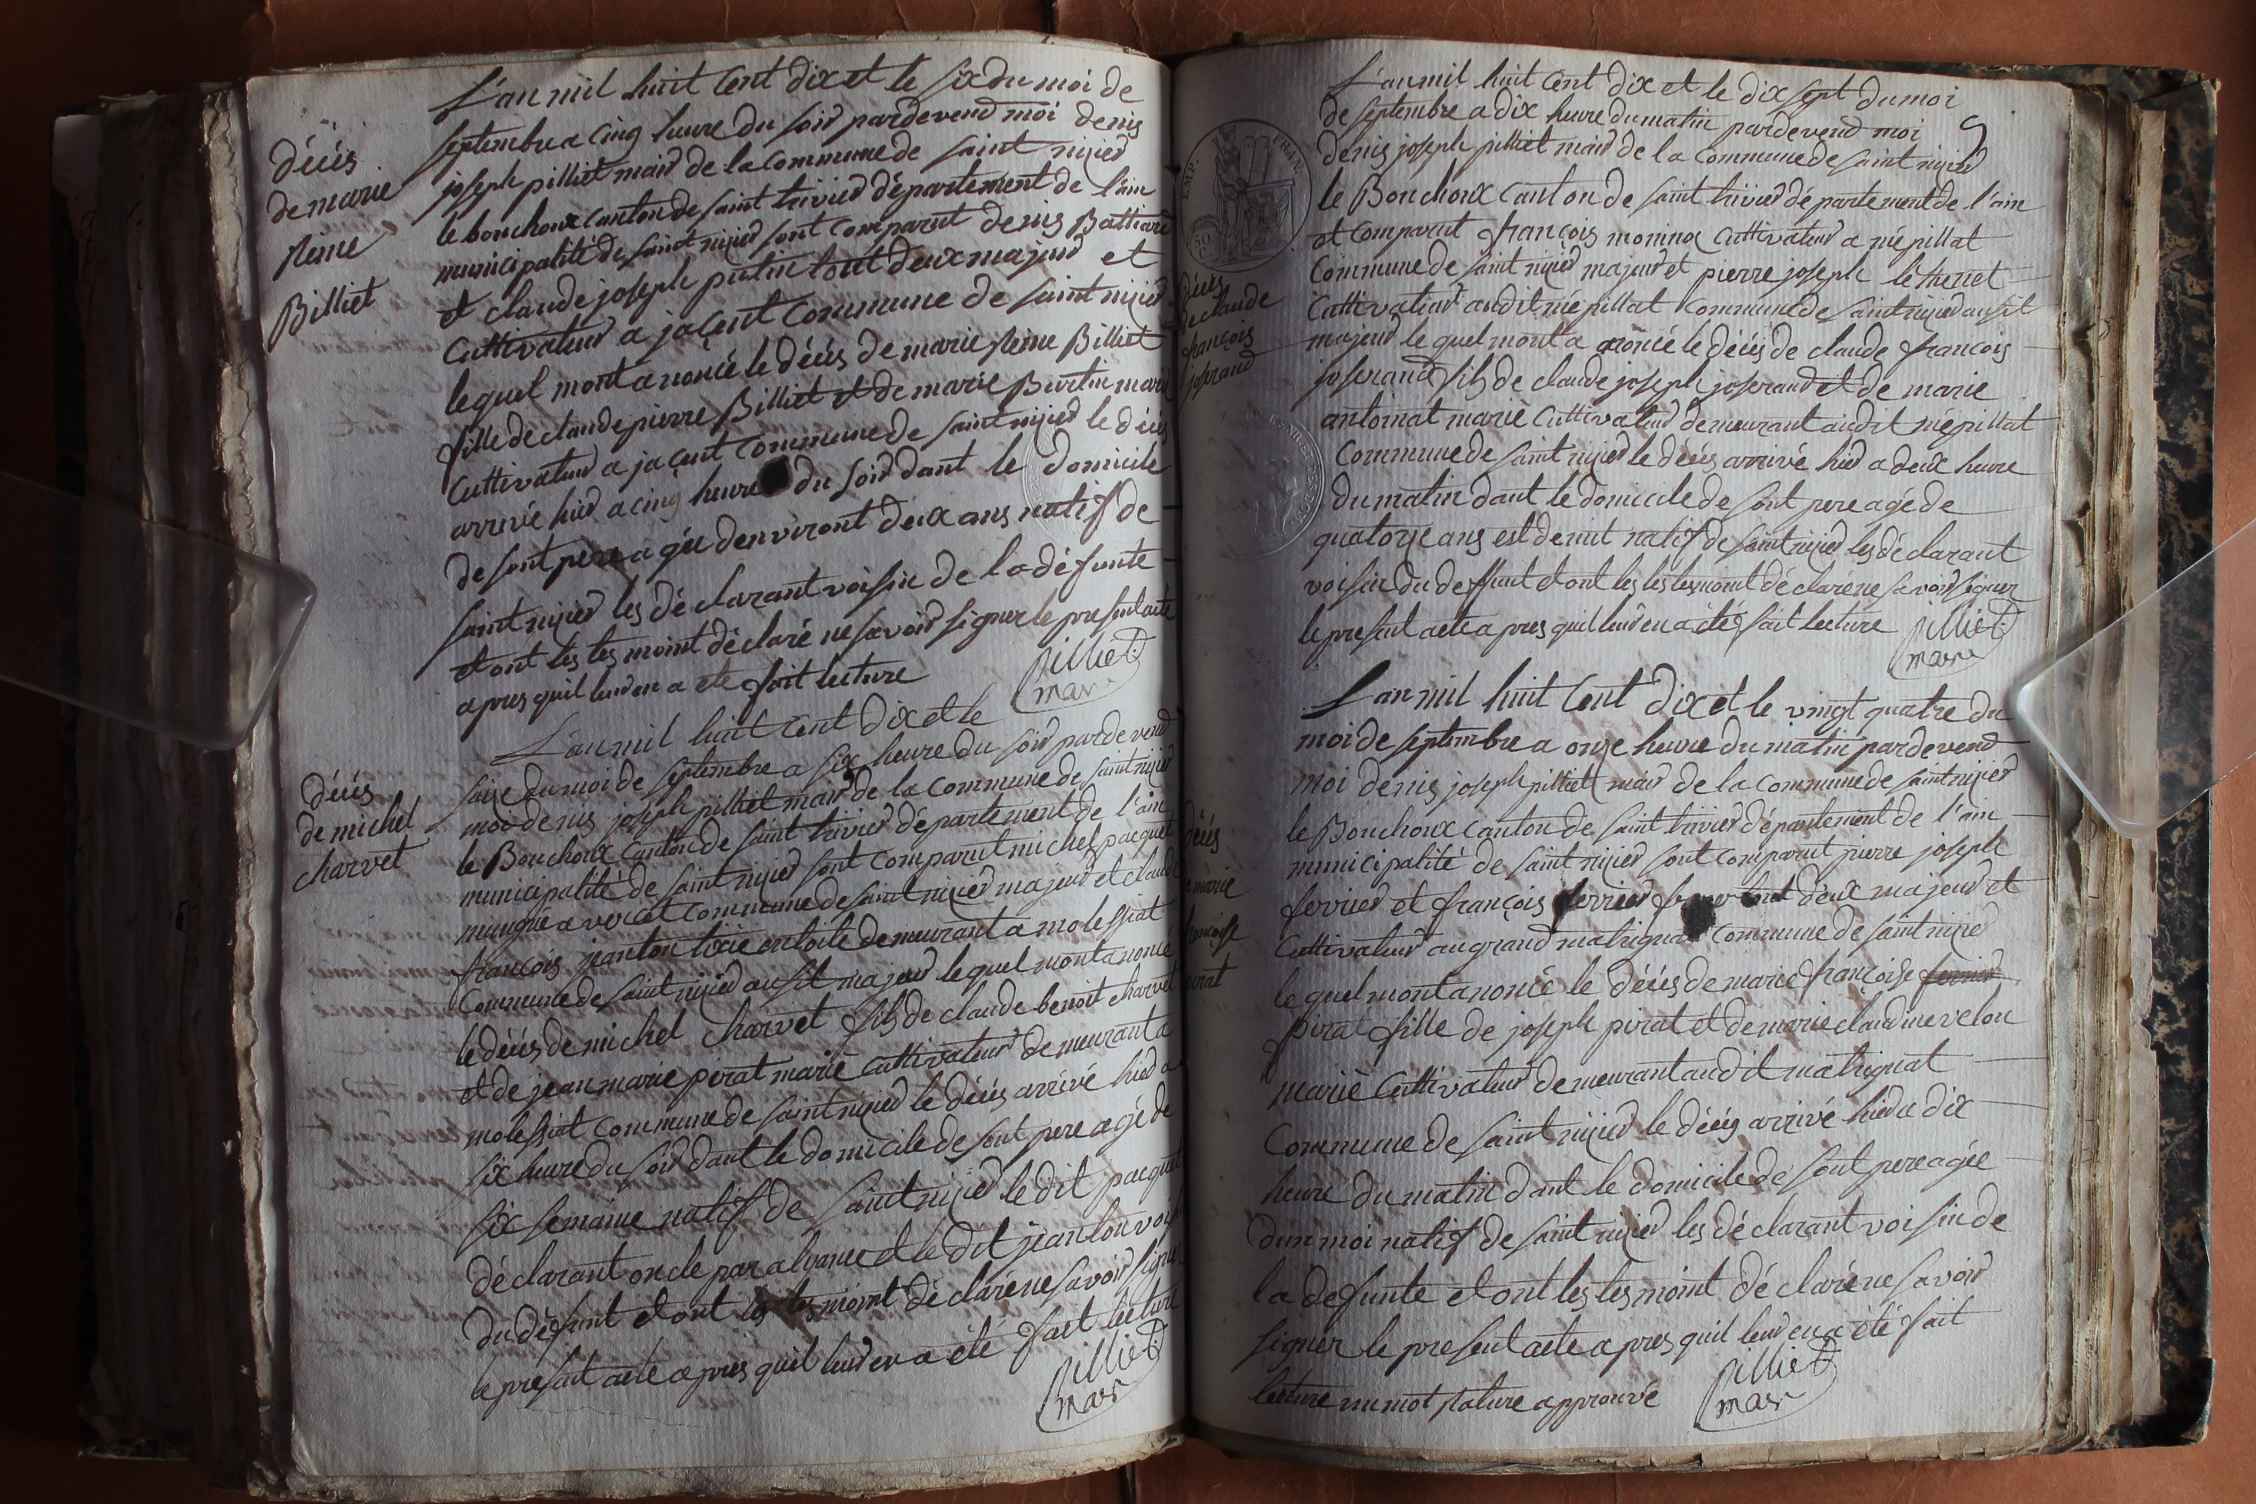 décés
de marie
Reine
Billiet
L'an mil huit Cent dix et le six du moi de
septembre a cinq heure du soir pardevend moi denis
joseph pilliet mair de la commune de saint nizier
le bouchoux canton de saint trivier département de l'ain
municipalité de saint nizier sont comparut denis Battiard
et claude joseph putin tout deux majeur et
Cultivateur a jaçent commune de saint nizier
lequel mont anoncé le décés de marie Reine Billiet
fille de claude pierre Billiet et de marie Burtin marié
Cultivateur a jaçent commune de saint nizier le décés
arrivé hier a cinq heure du soir dant le domicile
de sont pere agée denviront deux ans natif de
saint nizier les déclarant voisin de la défunte
et ont les tesmoint déclaré ne savoir signer le present acte
apres quil leur en a été fait lecture
Pilliet
mair
décés
de michel
charvet
L'an mil huit Cent dix et le
saize du moi de septembre a six heure du soir pardevend
moi denis joseph pilliet mair de la commune de saint nizier
le Bouchoux canton de saint trivier département de l'ain
municipalité de saint nizier sont comparut michel pacquet
a commune de saint nizier majeur et claude
françois jeanton en toile demeurant a molessiat
Commune de saint nizier ausit majeur lequel mont anoncé
le décés de michel charvet fils de claude benoit charvet
et de jeanmarie pirat marié cultivateur demeurant a
molessiat commune de saint nizier le décés arrivé hier a
six heure du soir dant le domicile de sont pere agé de
six semaine natif de saint nizier le dit pacquet
déclarant oncle par aliance et le dit jeanton voisin
du défunt et ont les tesmoint déclaré ne savoir signer
le present acte apres quil leur en a été fait lecture
Pilliet
mair
9
décés
de claude
françois
joserand
L'an mil huit Cent dix et le dix sept du moi
de septembre a dix heure du matin pardevend moi
denis joseph pilliet mair de la commune de saint nizier
le Bouchoux canton de saint trivier département de l'ain
et comparut françois moninox cultivateur a mépillat
Commune de saint nizier majeur et pierre joseph
Cultivateur audit mépillat commune de saint nizier ausit
majeur le quel mont a anoncé le décés de claude françois
joserand fils de claude joseph joserand et de marie
antoinat marié Cultivateur demeurant audit mépillat
Commune de saint nizier le décés arrivé hier a deux heure
du matin dant le domicile de sont pere agé de
quatorze ans est demit natif de saint nizier les déclarant
voisin du deffunt et ont les tesmoint déclaré ne savoir signer
le present acte apres quil leur en a été fait lecture
Pilliet
mair
décés
de marie
françoise
pirat
L'an mil huit Cent dix et le vingt quatre du
moi de septembre a onze heure du matin pardevend
moi denis joseph pilliet mair de la commune de saint nizier
le Bouchoux canton de saint trivier département de l'ain
municipalité de saint nizier sont comparut pierre joseph
ferrier et françois ferrier tout deux majeur et
Cultivateur au grand matrignat commune de saint nizier
le quel mont anoncé le décés de marie françoise ferrier
pirat fille de joseph pirat et de marie claudine velon
marié Cultivateur demeurant audit matrignat
Commune de saint nizier le décés arrivé hier a dix
heure du matin dant le domicile de sont pere agée
dun moi natif de saint nizier les déclarant voisin de
la defunte et ont les tesmoint déclaré ne savoir
signer le present acte apres quil leur en a été fait
lecture un mot rature approuvé
Pilliet
mair